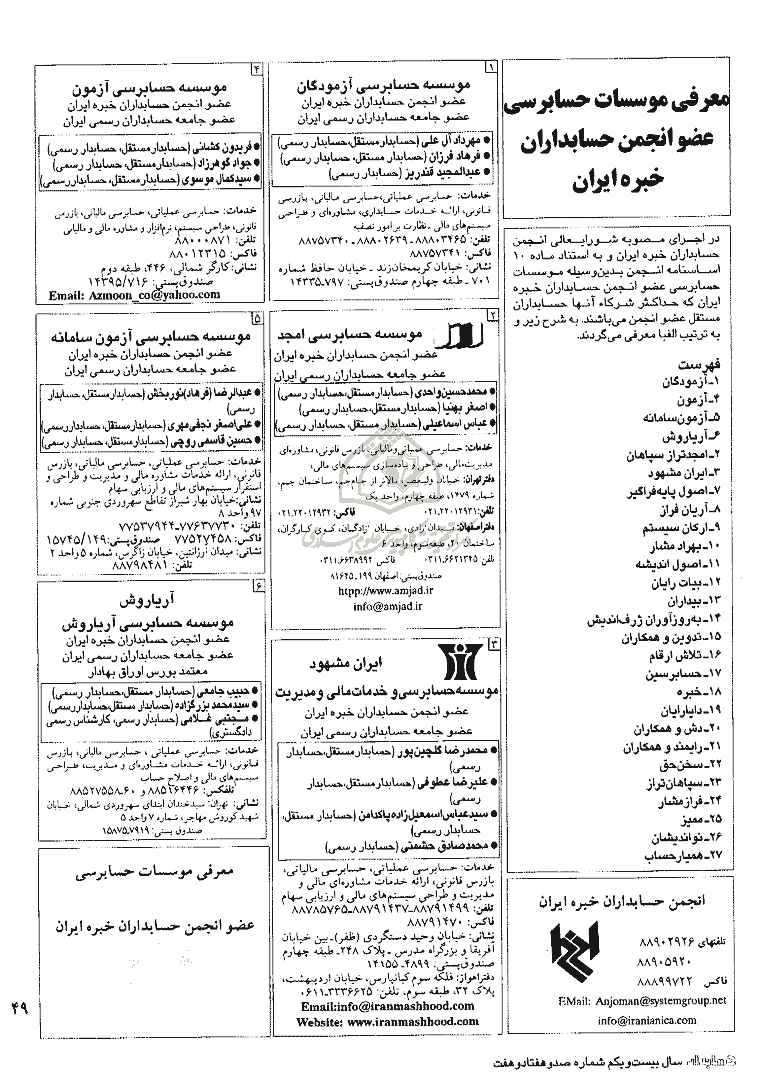 معرفی موسسات حسابرسی
عضو انجمن حسابداران
خبره ایران
در اجرای مصوبه شورایعالی انجمن
حسابداران خبره ایران و به استناد ماده ۱۰
اساسنامه انجمن بدین‌وسیله موسسات
حسابرسی عضو انجمن حسابداران خبره
ایران که حداکثر شرکاء آنها حسابداران
مستقل عضو انجمن می‌باشند. به شرح زیر و
به ترتیب الفبا معرفی می‌گردند.
فهرست
۱-آزمودگان
۴-آزمون
۵-آزمون‌سامانه
۶-آریاروش
۲-امجدتراز سپاهان
۳-ایران مشهود
۷-اصول پایه‌فراگیر
۸-آریان فراز
۹-ارکان سیستم
۱۰-بهراد مشار
۱۱-اصول اندیشه
۱۲-بیات رایان
۱۳-بیداران
۱۴-به‌روزآوران ژرف‌اندیش
۱۵-تدوین و همکاران
۱۶-تلاش ارقام
۱۷-حسابرسین
۱۸-خبره
۱۹-دایارایان
۲۰-دش و همکاران
۲۱-رایمند و همکاران
۲۲-سخن‌حق
۲۳-سپاهان‌تراز
۲۴-فرازمشار
۲۵-ممیز
۲۶-نواندیشان
۲۷-همیارحساب
انجمن حسابداران خبره ایران
تلفنهای ۸۸۹۰۲۹۲۶
۸۸۹۰۵۹۲۰
فاکس ۸۸۸۹۹۷۲۲
EMail: Anjoman@systemgroup.net
info@iranianica.com
۱
موسسه حسابرسی آزمودگان
عضو انجمن حسابداران خبره ایران
عضو جامعه حسابداران رسمی ایران
● مهرداد آل علی (حسابدار مستقل،حسابدار رسمی)
● فرهاد فرزان (حسابدار مستقل،حسابدار رسمی)
● عبدالمجید قندریز (حسابدار رسمی)
خدمات: حسابرسی عملیاتی، حسابرسی مالیاتی، بازرس
قانونی، ارائه خدمات حسابداری، مشاوره‌ای و طراحی
سیستم‌های مالی - نظارت بر امور تصفیه
تلفن: ۸۸۸۰۳۴۶۵-۸۸۸۰۲۶۳۹-۸۸۷۵۷۳۴۰
فاکس: ۸۸۷۵۷۳۴۱
نشانی: خیابان کریمخان‌زند - خیابان حافظ شماره
۷۰۱ - طبقه چهارم صندوق‌پستی: ۷۹۷-۱۴۳۳۵
۲
موسسه حسابرسی امجد
عضو انجمن حسابداران خبره ایران
عضو جامعه حسابداران رسمی ایران
● محمدحسین‌واحدی (حسابدار مستقل،حسابدار رسمی)
● اصغر بهنیا (حسابدار مستقل،حسابدار رسمی)
● عباس اسماعیلی (حسابدار مستقل،حسابدار رسمی)
خدمات: حسابرسی عملیاتی‌ومالیاتی، بازرس قانونی، مشاوره‌ای
مدیریت‌مالی، طراحی و پیاده‌سازی سیستم‌های مالی.
دفتر تهران: خیابان ولیعصر، بالاتر از جام‌جم، ساختمان جیم،
شماره ۱۴۷۹، طبقه چهارم، واحد یک
تلفن: ۰۲۱.۲۲۰۱۲۹۳۱ فاکس: ۰۲۱.۲۲۰۱۲۹۳۲
دفتر اصفهان: میدان آزادی، خیابان آزادگان، کوی کارگران،
ساختمان ۲۰، طبقه سوم، واحد ۶
تلفن: ۰۳۱۱.۶۶۲۱۳۴۵ فاکس: ۰۳۱۱.۶۶۳۸۹۹۲
صندوق‌پستی: اصفهان ۱۹۹ـ۸۱۶۴۵
htpp://www.amjad.ir
info@amjad.ir
۳
ایران مشهود
موسسه‌حسابرسی‌و خدمات‌مالی و مدیریت
عضو انجمن حسابداران خبره ایران
عضو جامعه حسابداران رسمی ایران
● محمدرضا گلچین‌پور (حسابدار مستقل،حسابدار
رسمی)
● علیرضا عطوفی (حسابدار مستقل،حسابدار
رسمی)
● سیدعباس اسمعیل‌زاده‌پاکدامن (حسابدار مستقل،
حسابدار رسمی)
● محمدصادق حشمتی (حسابدار رسمی)
خدمات: حسابرسی عملیاتی، حسابرسی مالیاتی،
بازرس قانونی، ارائه خدمات مشاوره‌ای مالی و
مدیریت و طراحی سیستم‌های مالی و ارزیابی سهام
تلفن: ۸۸۷۹۱۴۹۹-۸۸۷۹۱۴۳۷-۸۸۷۸۵۷۶۵
فاکس: ۸۸۷۹۱۴۷۰
نشانی: خیابان وحید دستگردی (ظفر)-بین خیابان
آفریقا و بزرگراه مدرس - پلاک ۲۴۸- طبقه چهارم
صندوق‌پستی: ۴۸۹۹- ۱۴۱۵۵
دفتراهواز: فلکه سوم کیانپارس، خیابان اردیبهشت،
پلاک ۳۲، طبقه سوم، تلفن: ۳۳۳۶۶۲۵-۰۶۱۱
Email:info@iranmashhood.com
Website: www.iranmashhood.com
۴
موسسه حسابرسی آزمون
عضو انجمن حسابداران خبره ایران
عضو جامعه حسابداران رسمی ایران
● فریدون کشانی (حسابدار مستقل، حسابدار رسمی)
● جواد گوهرزاد (حسابدار مستقل، حسابدار رسمی)
● سیدکمال موسوی (حسابدار مستقل، حسابداررسمی)
خدمات: حسابرسی عملیاتی، حسابرسی مالیاتی، بازرس
قانونی، طراحی سیستم، نرم‌افزار و مشاوره مالی و مالیاتی
تلفن: ۸۸۰۰۰۸۷۱
فاکس: ۸۸۰۱۲۳۱۵
نشانی: کارگر شمالی، ۴۴۶، طبقه دوم
صندوق‌پستی: ۱۴۳۹۵/۷۱۶
Email: Azmoon_co@yahoo.com
۵
موسسه حسابرسی آزمون سامانه
عضو انجمن حسابداران خبره ایران
عضو جامعه حسابداران رسمی ایران
● عبدالرضا (فرهاد)نوربخش (حسابدار مستقل، حسابدار
رسمی)
● علی‌اصغر نجفی‌مهری (حسابدار مستقل، حسابداررسمی)
● حسین قاسمی روچی (حسابدار مستقل، حسابدار رسمی)
خدمات: حسابرسی عملیاتی، حسابرسی مالیاتی، بازرس
قانونی، ارائه خدمات مشاوره مالی و مدیریت و طراحی و
استقرار سیستم‌های مالی و ارزیابی سهام
نشانی:خیابان بهار شیراز تقاطع سهروردی جنوبی شماره
۹۷ واحد ۸
تلفن: ۷۷۶۳۷۷۳۰-۷۷۵۳۷۹۴۴
فاکس: ۷۷۵۲۷۴۵۸ صندوق‌پستی: ۱۵۷۴۵/۱۴۹
نشانی: میدان آرژانتین، خیابان زاگرس، شماره ۵ واحد ۲
تلفن: ۸۸۷۹۸۴۸۱
۶
آریاروش
موسسه حسابرسی آریاروش
عضو انجمن حسابداران خبره ایران
عضو جامعه حسابداران رسمی ایران
معتمد بورس اوراق بهادار
● حبیب جامعی (حسابدار مستقل،حسابدار رسمی)
● سیدمحمد بزرگزاده (حسابدار مستقل،حسابدار رسمی)
● مجتبی غلامی (حسابدار رسمی، کارشناس رسمی
دادگستری)
خدمات: حسابرسی عملیاتی ، حسابرسی مالیاتی، بازرس
قانونی، ارائه خدمات مشاوره‌ای و مدیریت، طراحی
سیستم‌های مالی و اصلاح حساب
تلفکس: ۸۸۵۲۶۴۴۶ و ۶۰-۸۸۵۲۷۵۵۸
نشانی: تهران: سیدخندان ابتدای سهروردی شمالی، خیابان
شهید کوروش مهاجر، شماره ۷ واحد ۵
صندوق پستی: ۷۹۱۹-۱۵۸۷۵
معرفی موسسات حسابرسی
عضو انجمن حسابداران خبره ایران
۴۹
سال بیست‌ویکم شماره صدوهفتادوهفت